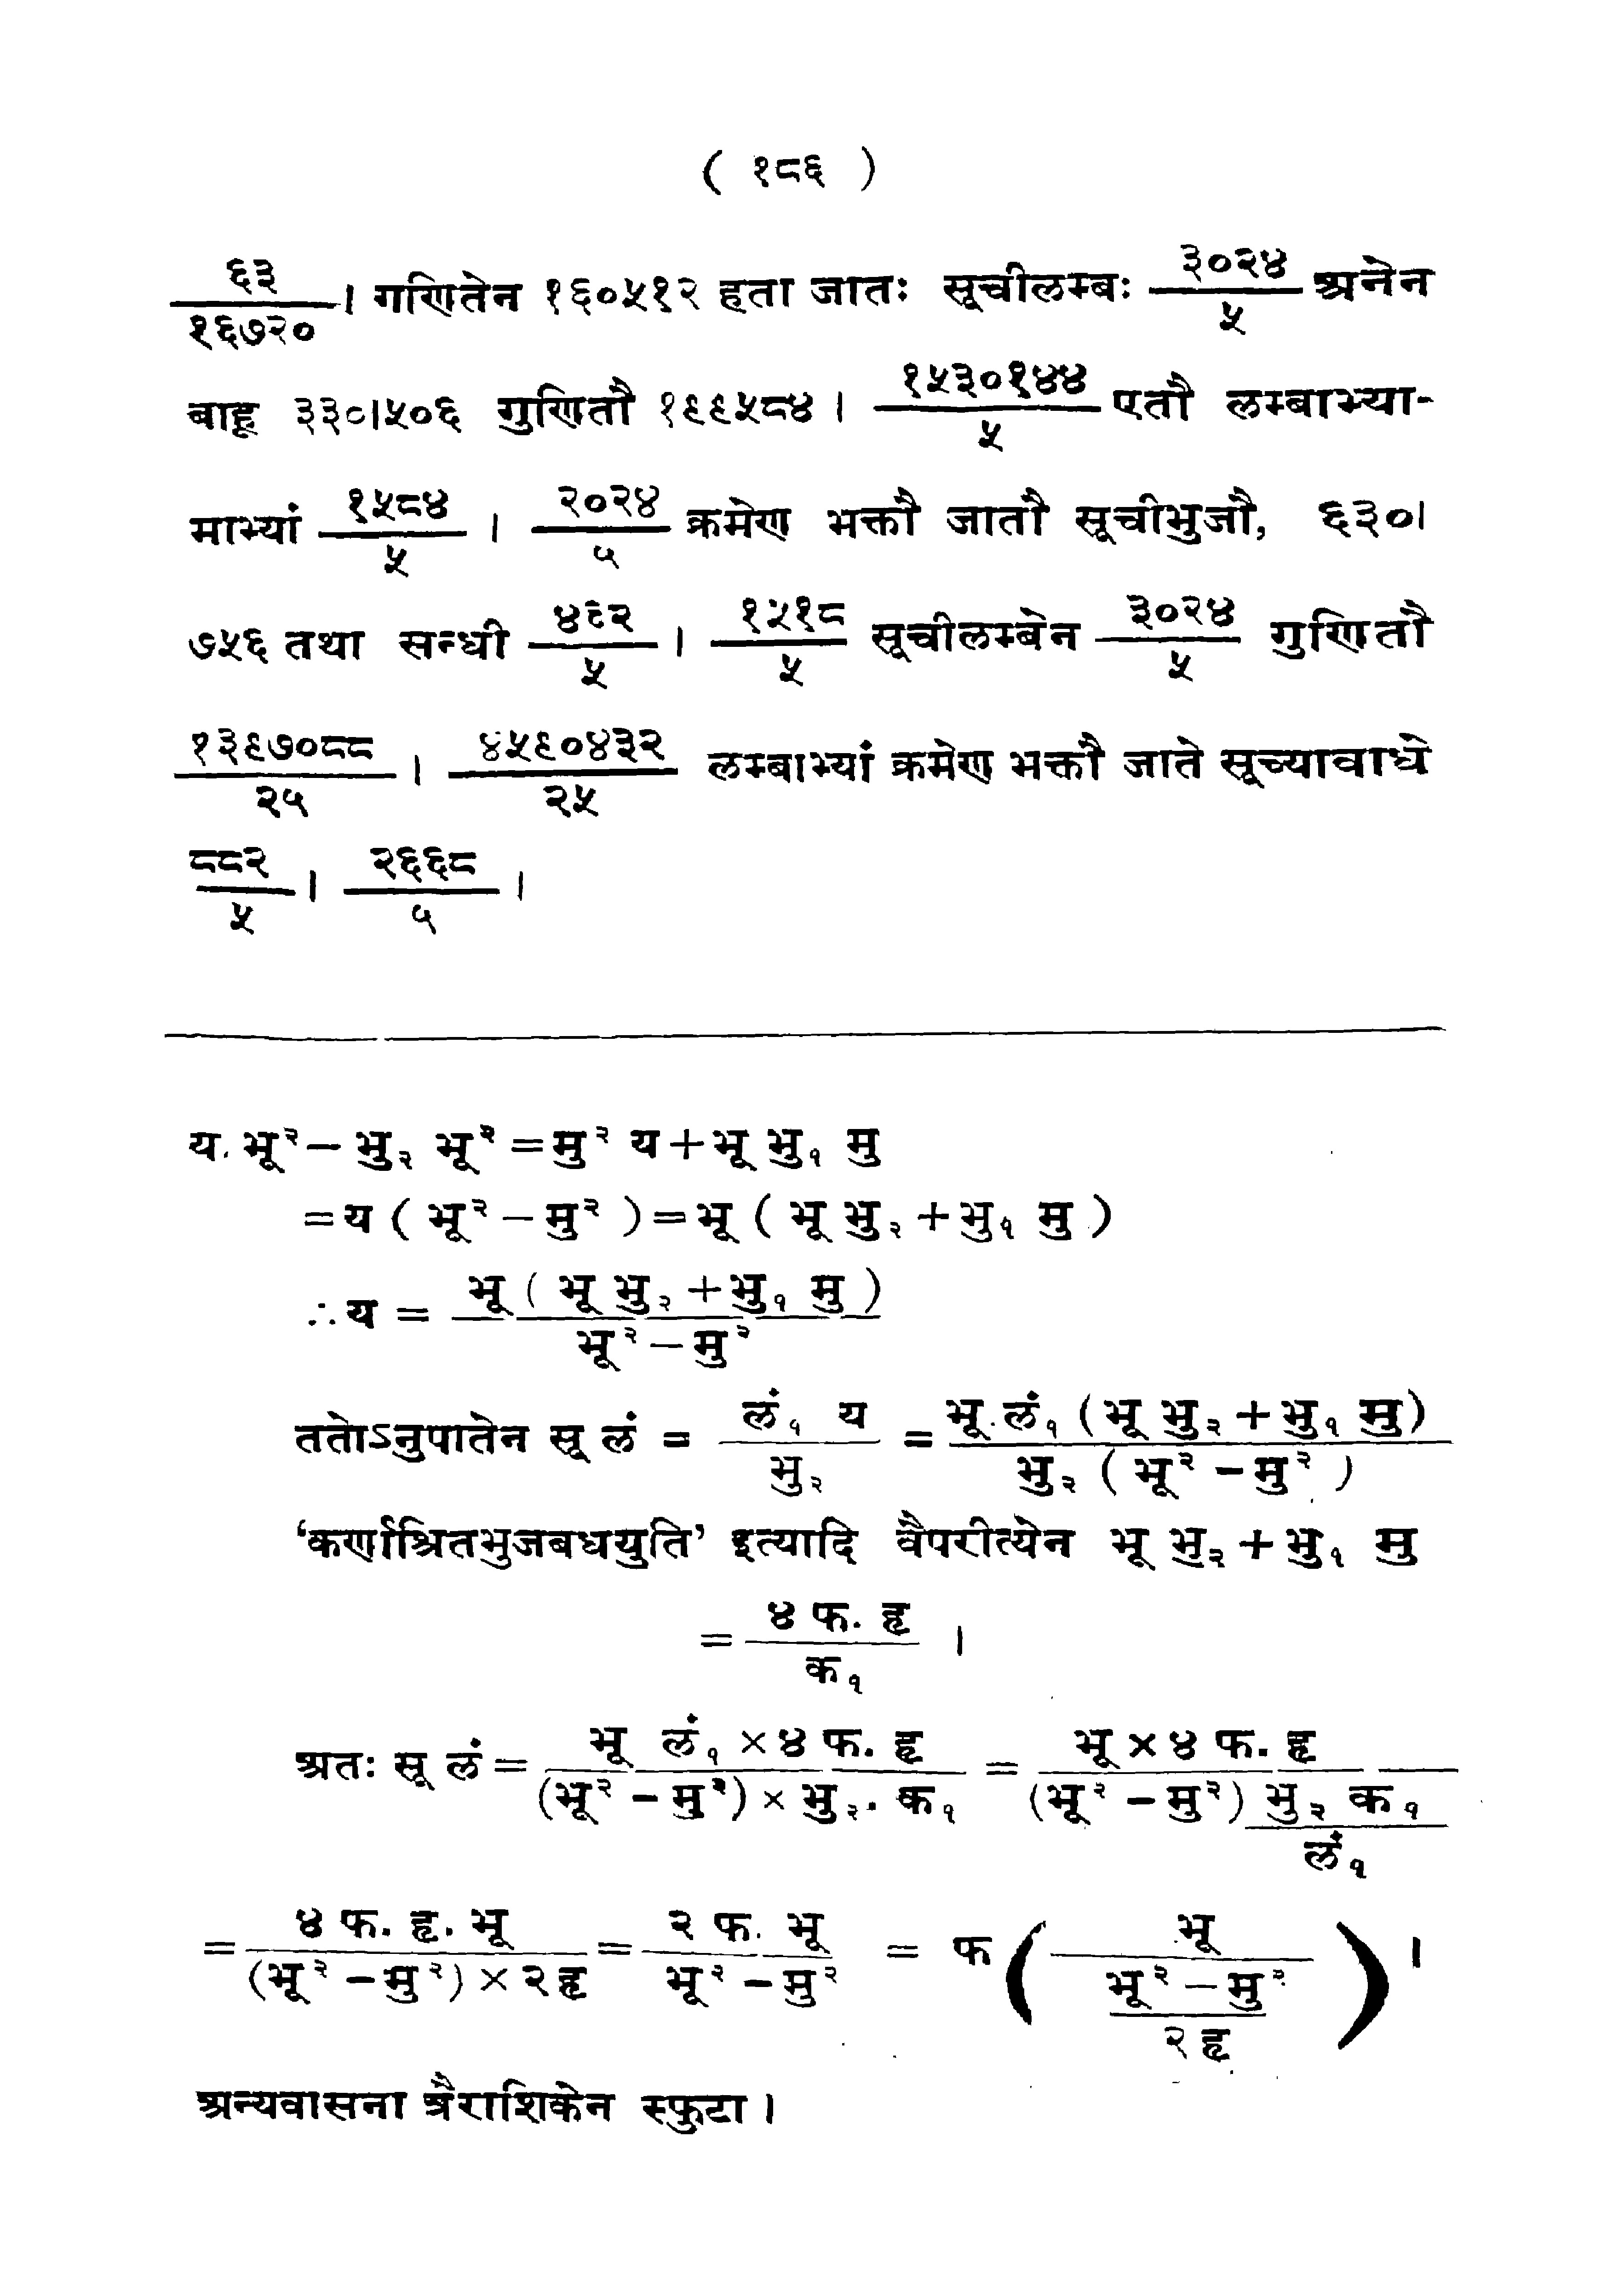 ( १८६ )
६३/१६७२० । गणितेन १६०५१२ हता जातः सूचीलम्बः ३०२४/५ अनेन
बाहू ३३०।५०६ गुणितौ १९९५८४ । १५३०१४४/५ एतौ लम्बाभ्या-
माभ्यां १५८४/५ । २०२४/५ क्रमेण भक्तौ जातौ सूचीभुजौ, ६३०।
७५६ तथा सन्धी ४६२/५ । १५१८/५ सूचीलम्बेन ३०२४/५ गुणितौ
१३९७०८८/२५ । ४५९०४३२/२५ लम्बाभ्यां क्रमेण भक्तौ जाते सूच्यावाधे
८८२/५ । २६६८/५ ।
य. भू² − भु₂ भू² = मु² य + भू भु₁ मु
= य ( भू² − मु² ) = भू ( भू भु₂ + भु₁ मु )
∴ य = भू ( भू भु₂ + भु₁ मु ) / भू² − मु²
ततोऽनुपातेन सू लं = लं₁ य / भु₂ = भू. लं₁ ( भू भु₂ + भु₁ मु ) / भु₂ ( भू² − मु² )
‘कर्णाश्रितभुजबधयुति’ इत्यादि वैपरीत्येन भू भु₂ + भु₁ मु
= ४ फ. हृ / क₁ ।
अतः सू लं = भू लं₁ × ४ फ. हृ / (भू² − मु²) × भु₂. क₁ = भू × ४ फ. हृ / (भू² − मु²) भु₂ क₁ / लं₁
= ४ फ. हृ. भू / (भू² − मु²) × २ हृ = २ फ. भू / भू² − मु² = फ ( भू / भू² − मु² / २ हृ ) ।
अन्यवासना त्रैराशिकेन स्फुटा ।